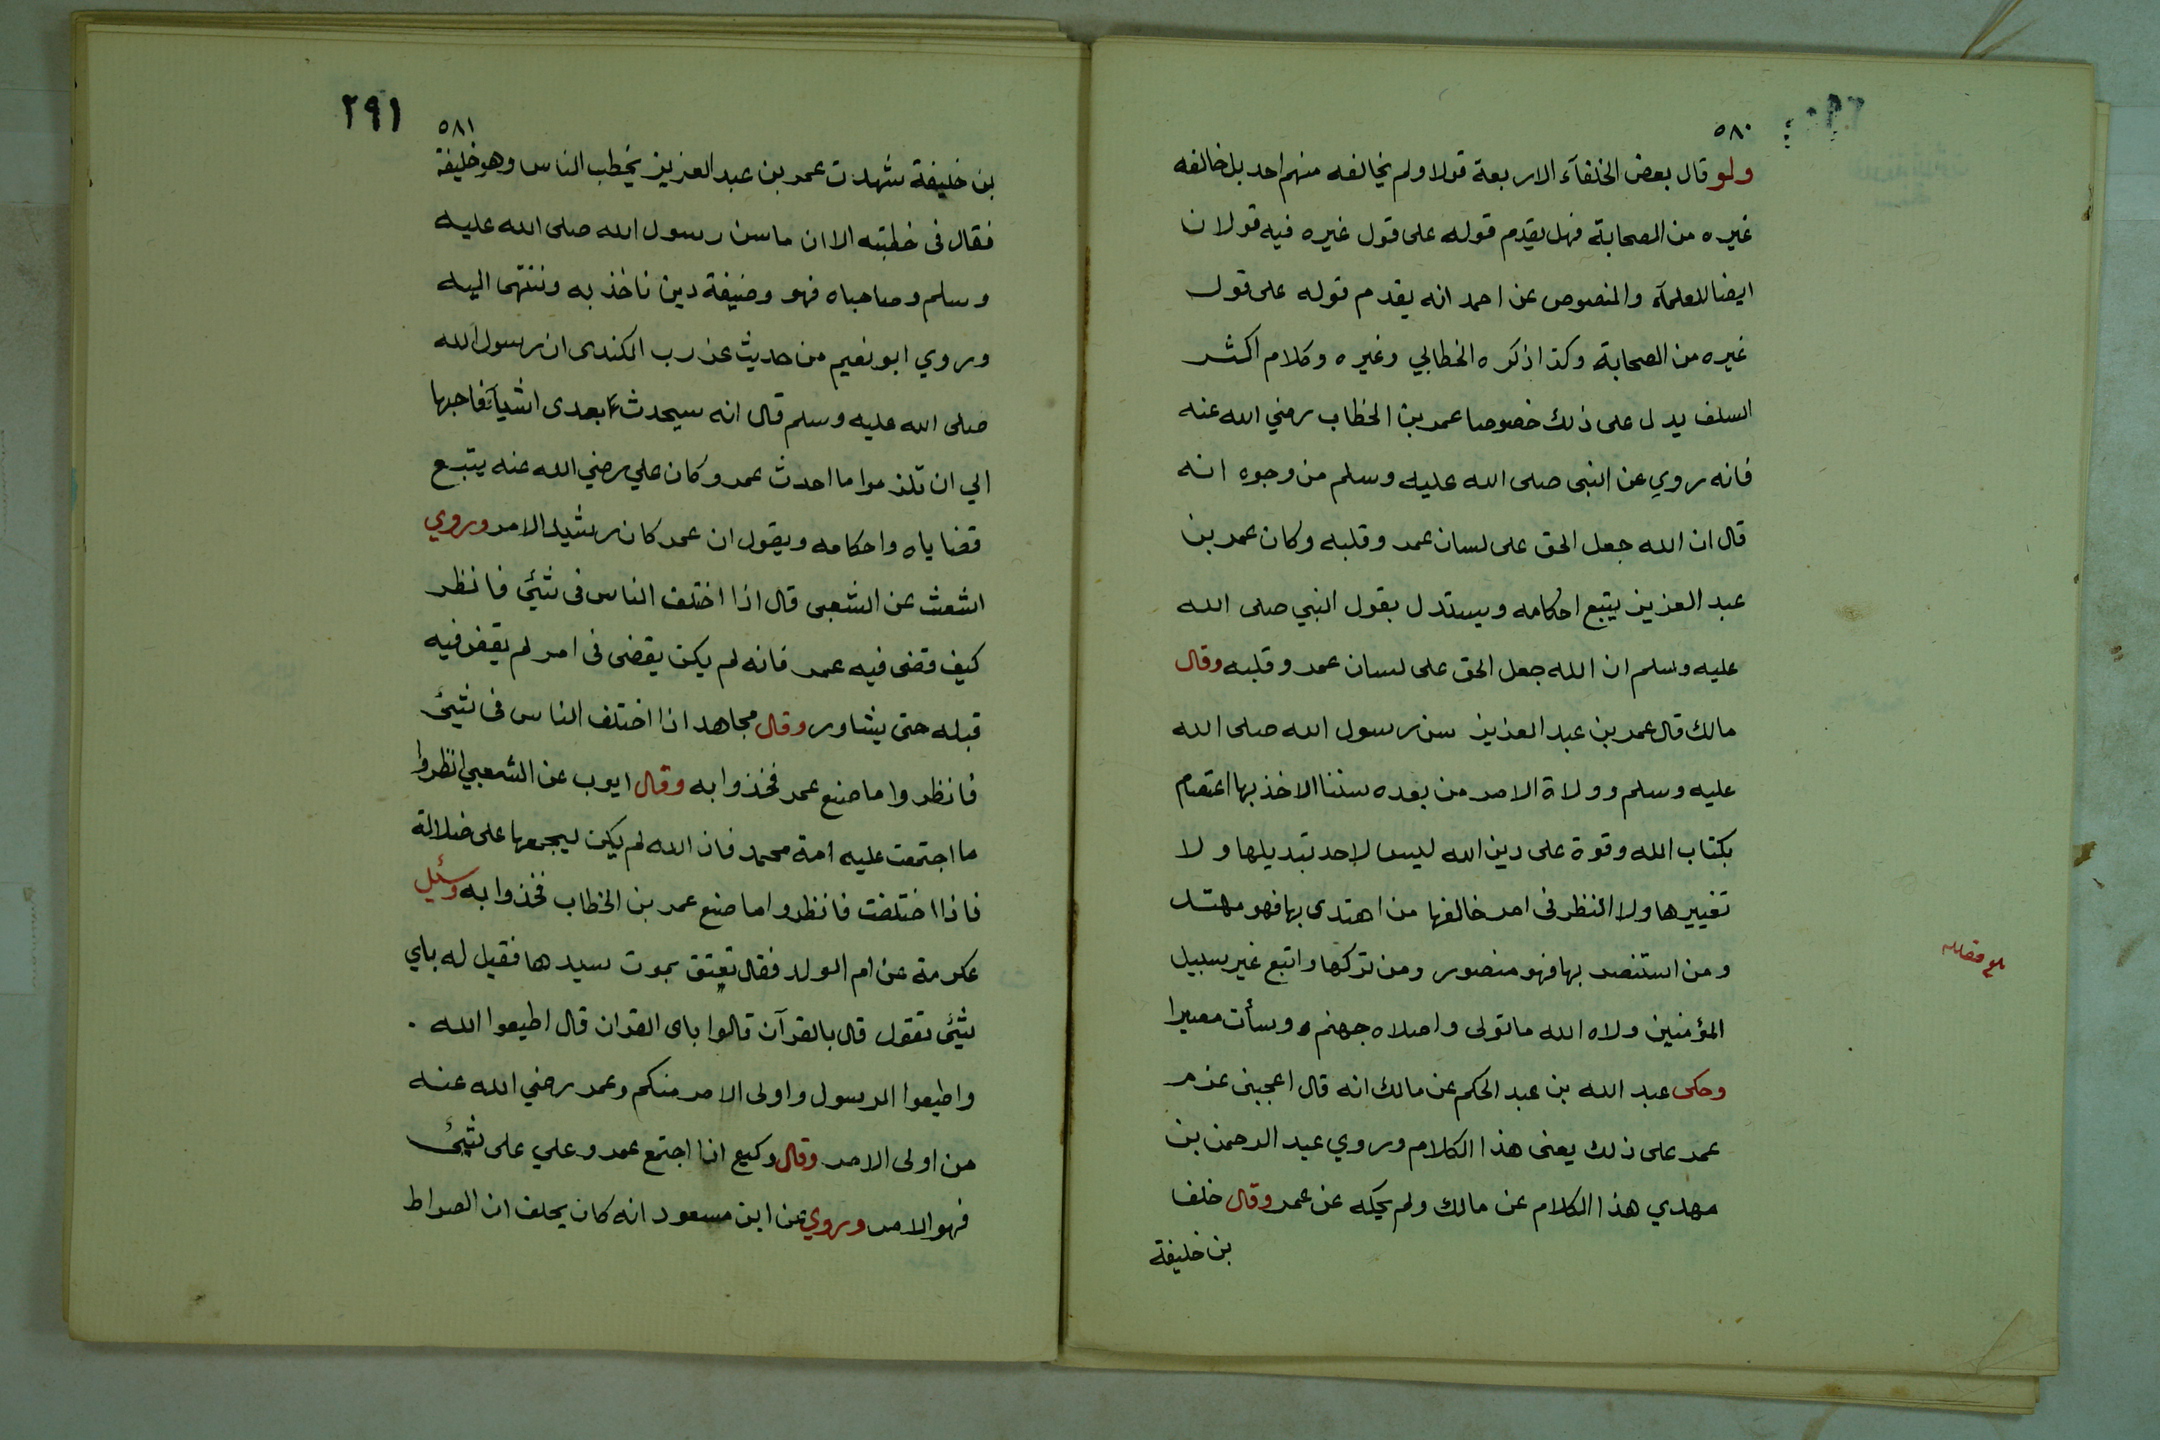 ٥٨٠
ولو قال بعض الخلفآء الاربعة قولا ولم يخالفه منهم احد بل خالفه
غيره من الصحابة فهل يقدم قوله على قول غيره فيه قولان
ايضا للعلمآء والمنصوص عن احمد انه يقدم قوله على قول
غيره من الصحابة وكذا ذكره الخطابي وغيره وكلام اكثر
السلف يدل على ذلك خصوصا عمر بن الخطاب رضي الله عنه
فانه روي عن النبى صلى الله عليه وسلم من وجوه انه
قال ان الله جعل الحق على لسان عمر وقلبه وكان عمر بن
عبد العزيز يتبع احكامه ويستدل بقول النبي صلى الله
عليه وسلم ان الله جعل الحق على لسان عمر وقلبه وقال
مالك قال عمر بن عبد العزيز سن رسول الله صلى الله
عليه وسلم وولاة الامر من بعده سننا الاخذ بها اعتصام
بكتاب الله وقوة على دين الله ليس لاحد تبديلها ولا
تغييرها ولا النظر فى امر خالفها من اهتدى بها فهو مهتد
ومن استنصر بها فهو منصور ومن تركها واتبع غير سبيل
المؤمنين ولاه الله ما تولى واصلاه جهنم وسأت مصيرا
وحكى عبد الله بن عبد الحكم عن مالك انه قال اعجبنى عزم
عمر على ذلك يعنى هذا الكلام وروي عبد الرحمن بن
مهدي هذا الكلام عن مالك ولم يحكه عن عمر وقال خلف
بن خليفة
٢٩١
٥٨١
بن خليفة شهدت عمر بن عبد العزيز يخطب الناس وهو خليفة
فقال فى خطبته الا ان ما سن رسول الله صلى الله عليه
وسلم وصاحباه فهو وضيفة دين ناخذ به وننتهى اليه
وروي ابو نعيم من حديث عذرب الكندى ان رسول الله
صلى الله عليه وسلم قال انه سيحدث بعدى اشيآء فاحبها
الي ان تلزموا ما احدث عمر وكان علي رضي الله عنه يتبع
قضاياه واحكامه ويقول ان عمر كان رشيد الامر وروي
اشعث عن الشعبى قال اذا اختلف الناس فى شئ فانظر
كيف قضى فيه عمر فانه لم يكن يقضى فى امر لم يقض فيه
قبله حتى يشاور وقال مجاهد اذا اختلف الناس فى شئ
فانظروا ما صنع عمر فخذوا به وقال ايوب عن الشعبي انظروا
ما اجتمعت عليه امة محمد فان الله لم يكن ليجمعها على ضلالة
فاذا اختلفت فانظروا ما صنع عمر بن الخطاب فخذوا به وسئل
عكرمة عن ام الولد فقال تعتق بموت سيدها فقيل له باي
شئ تقول قال بالقرآن قالوا باى القران قال اطيعوا الله .
واطيعوا الرسول واولى الامر منكم وعمر رضي الله عنه
من اولى الامر وقال وكيع اذا اجتمع عمر وعلي على شئ
فهو الامر وروي عن ابن مسعود انه كان يحلف ان الصراط